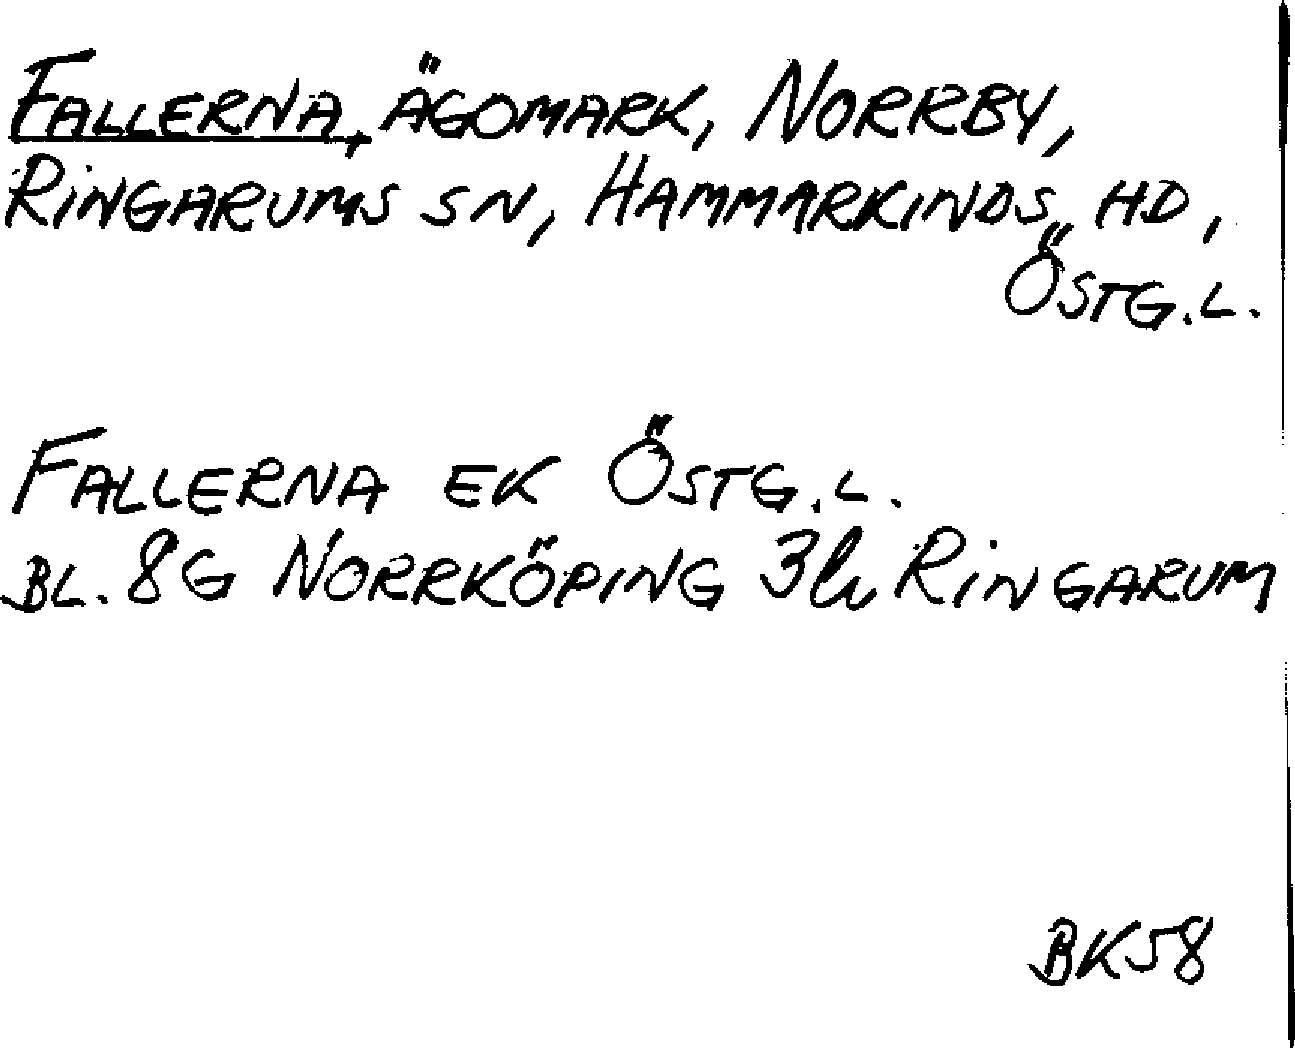 FALLERNA, ÄGOMARK, NORRBY,
RINGARUMS SN, HAMMARKINDS HD,
ÖSTG.L.
FALLERNA EK ÖSTG.L.
BL. 8G NORRKÖPING 3h RINGARUM
BK58